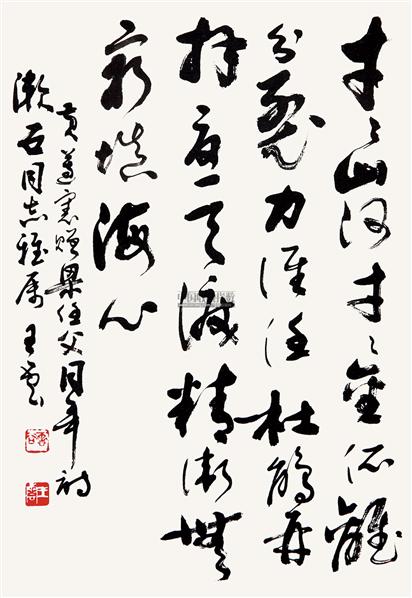 寸〻山河寸〻金侉離
分裂力誰任杜鵑再
拜憂天淚精衛無
窮填海心
黄遵憲贈梁任父同年詩
漱石同志雅属 王